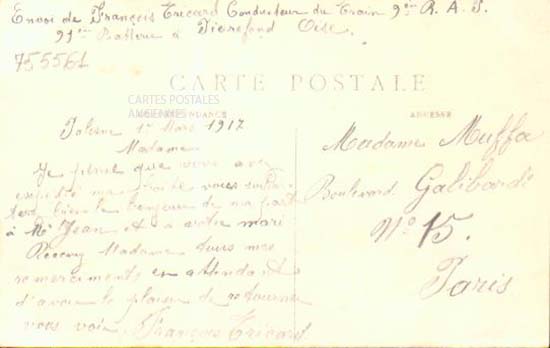 Envoi de François Tricard Conducteur du Train 9ème R. A. P.
91ème Batterie à Pierrefond Oise.
755561
CARTE POSTALE
CARTES POSTALES
ANCIENNES
CORRESPONDANCE
ADRESSE
1er Mars 1917
Madame
Je pense que vous avez
vous
bien le bonjour de ma part
à Mr Jean et a votre mari
Recevez Madame tous mes
remerciments en attendant
d'avoir le plaisir de retourner
vous voir. François Tricard
Madame Muffa
Boulevard Galibardi
No 15.
Paris